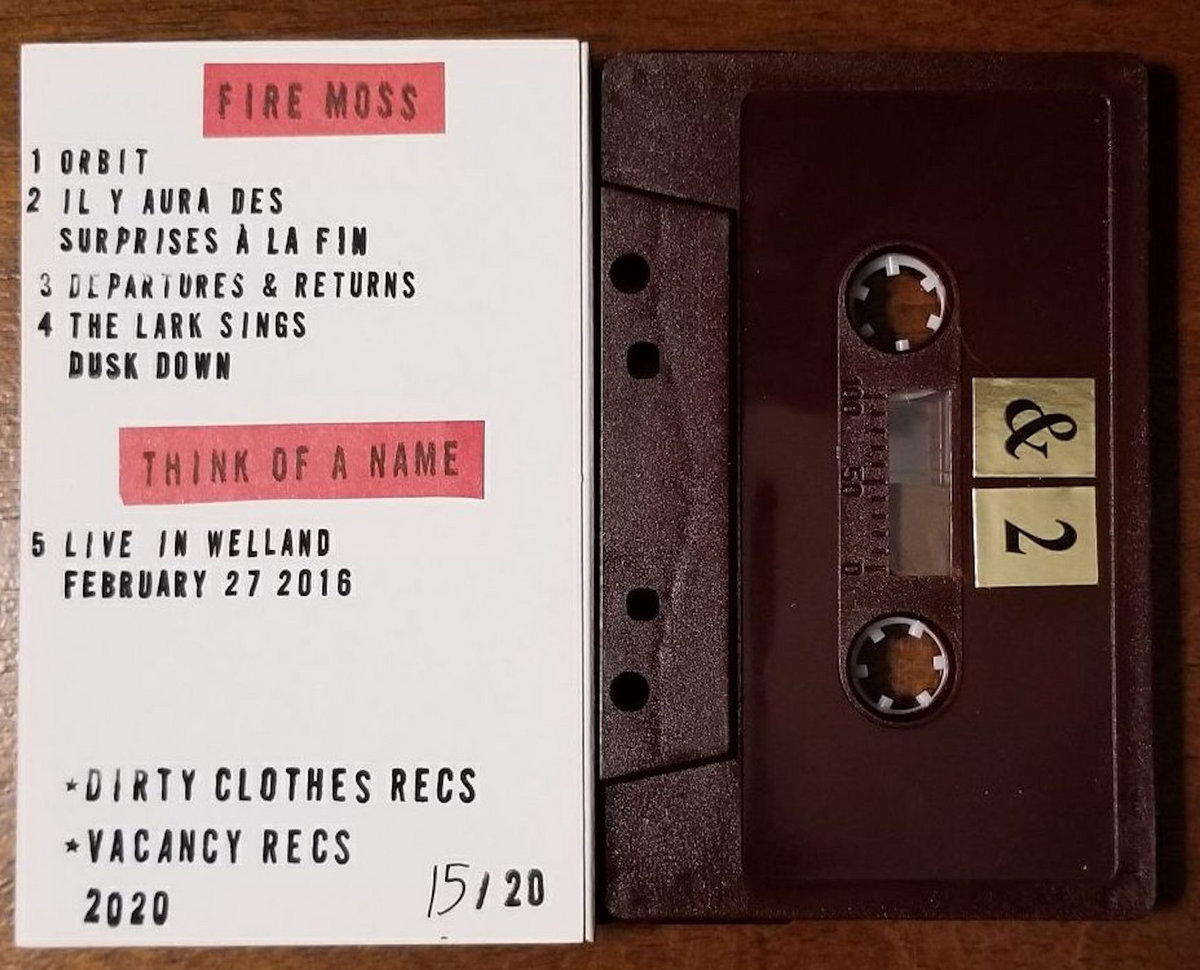 FIRE MOSS
1 ORBIT
2 IL Y AURA DES
SURPRISES À LA FIN
3 DEPARTURES & RETURNS
4 THE LARK SINGS
DUSK DOWN
THINK OF A NAME
5 LIVE IN WELLAND
FEBRUARY 27 2016
★DIRTY CLOTHES RECS
★VACANCY RECS
2020
15/20
100 50 0
&
2